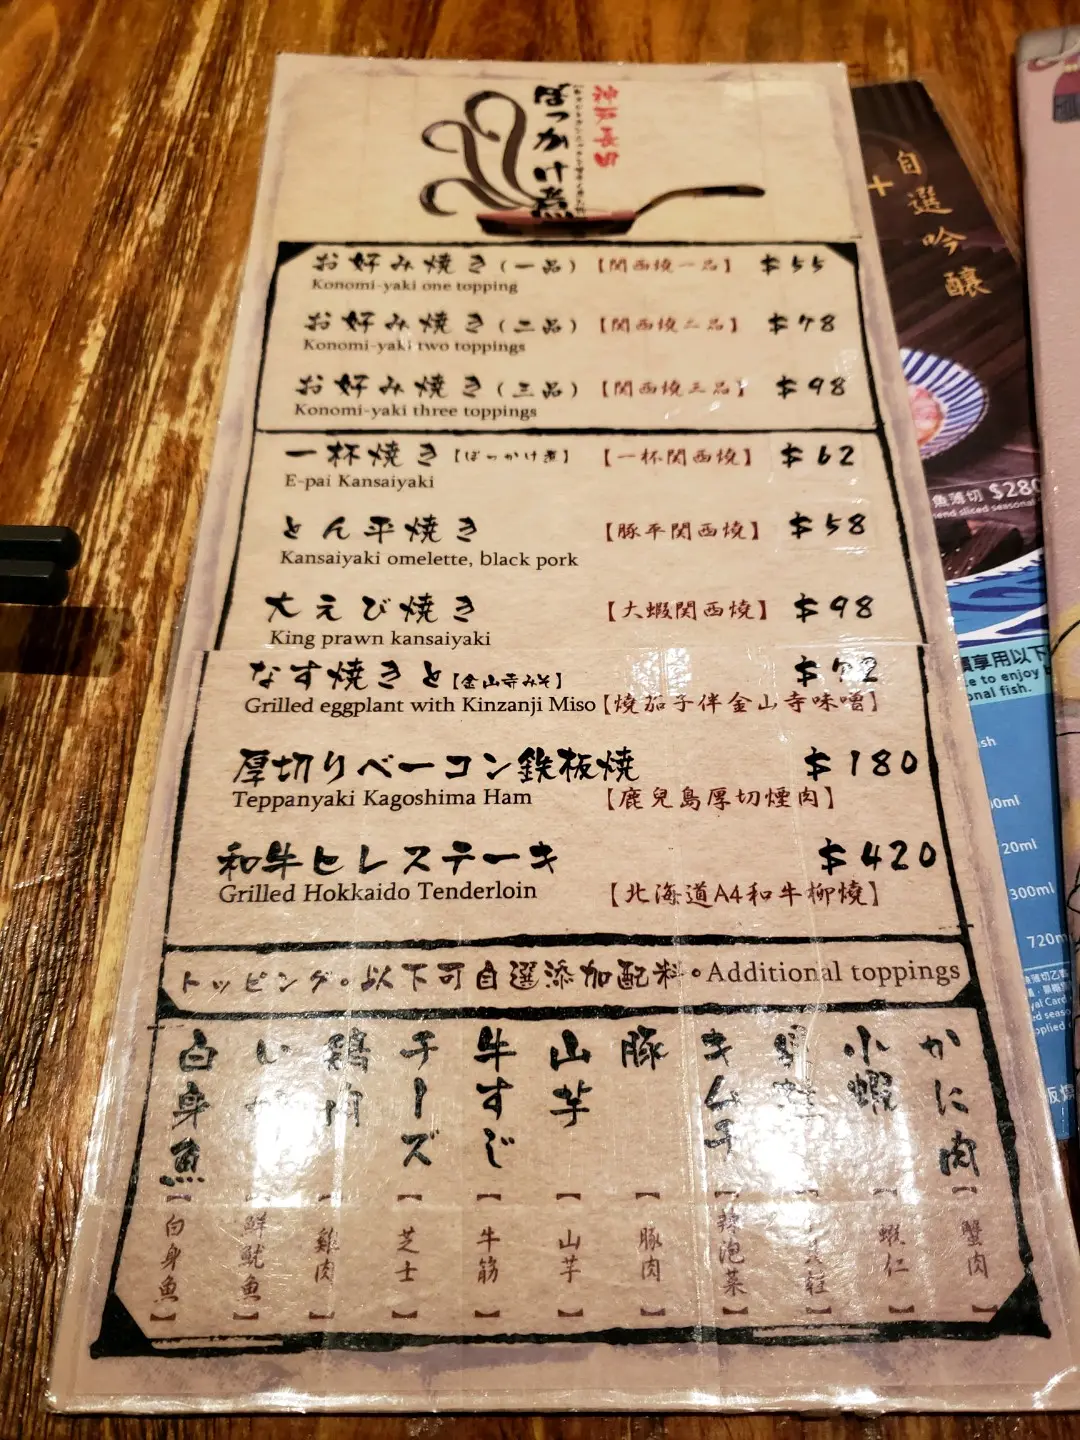 ぼっかけ煮
お好み焼き(一品)【関西燒一品】 $55
Konomi-yaki one topping
お好み焼き(二品)【関西燒二品】 $78
Konomi-yaki two toppings
お好み焼き(三品)【関西燒三品】 $98
Konomi-yaki three toppings
一杯焼き【ぼっかけ煮】【一杯関西燒】 $62
E-pai Kansaiyaki
とん平焼き【豚平関西燒】 $58
Kansaiyaki omelette, black pork
大えび焼き【大蝦関西燒】 $98
King prawn kansaiyaki
なす焼きと【金山寺みそ】 $72
Grilled eggplant with Kinzanji Miso【燒茄子伴金山寺味噌】
厚切りベーコン鉄板焼 $180
Teppanyaki Kagoshima Ham【鹿兒島厚切煙肉】
和牛ヒレステーキ $420
Grilled Hokkaido Tenderloin【北海道A4和牛柳燒】
トッピング。以下可自選添加配料。Additional toppings
かに肉【蟹肉】
小蝦【蝦仁】
キムチ【辣泡菜】
豚【豚肉】
山芋【山芋】
牛すじ【牛筋】
チーズ【芝士】
鶏肉【雞肉】
【鮮魷魚】
白身魚【白身魚】
自選吟釀
+
魚薄切 $280
享用以下
to enjoy
fish.
20ml
300ml